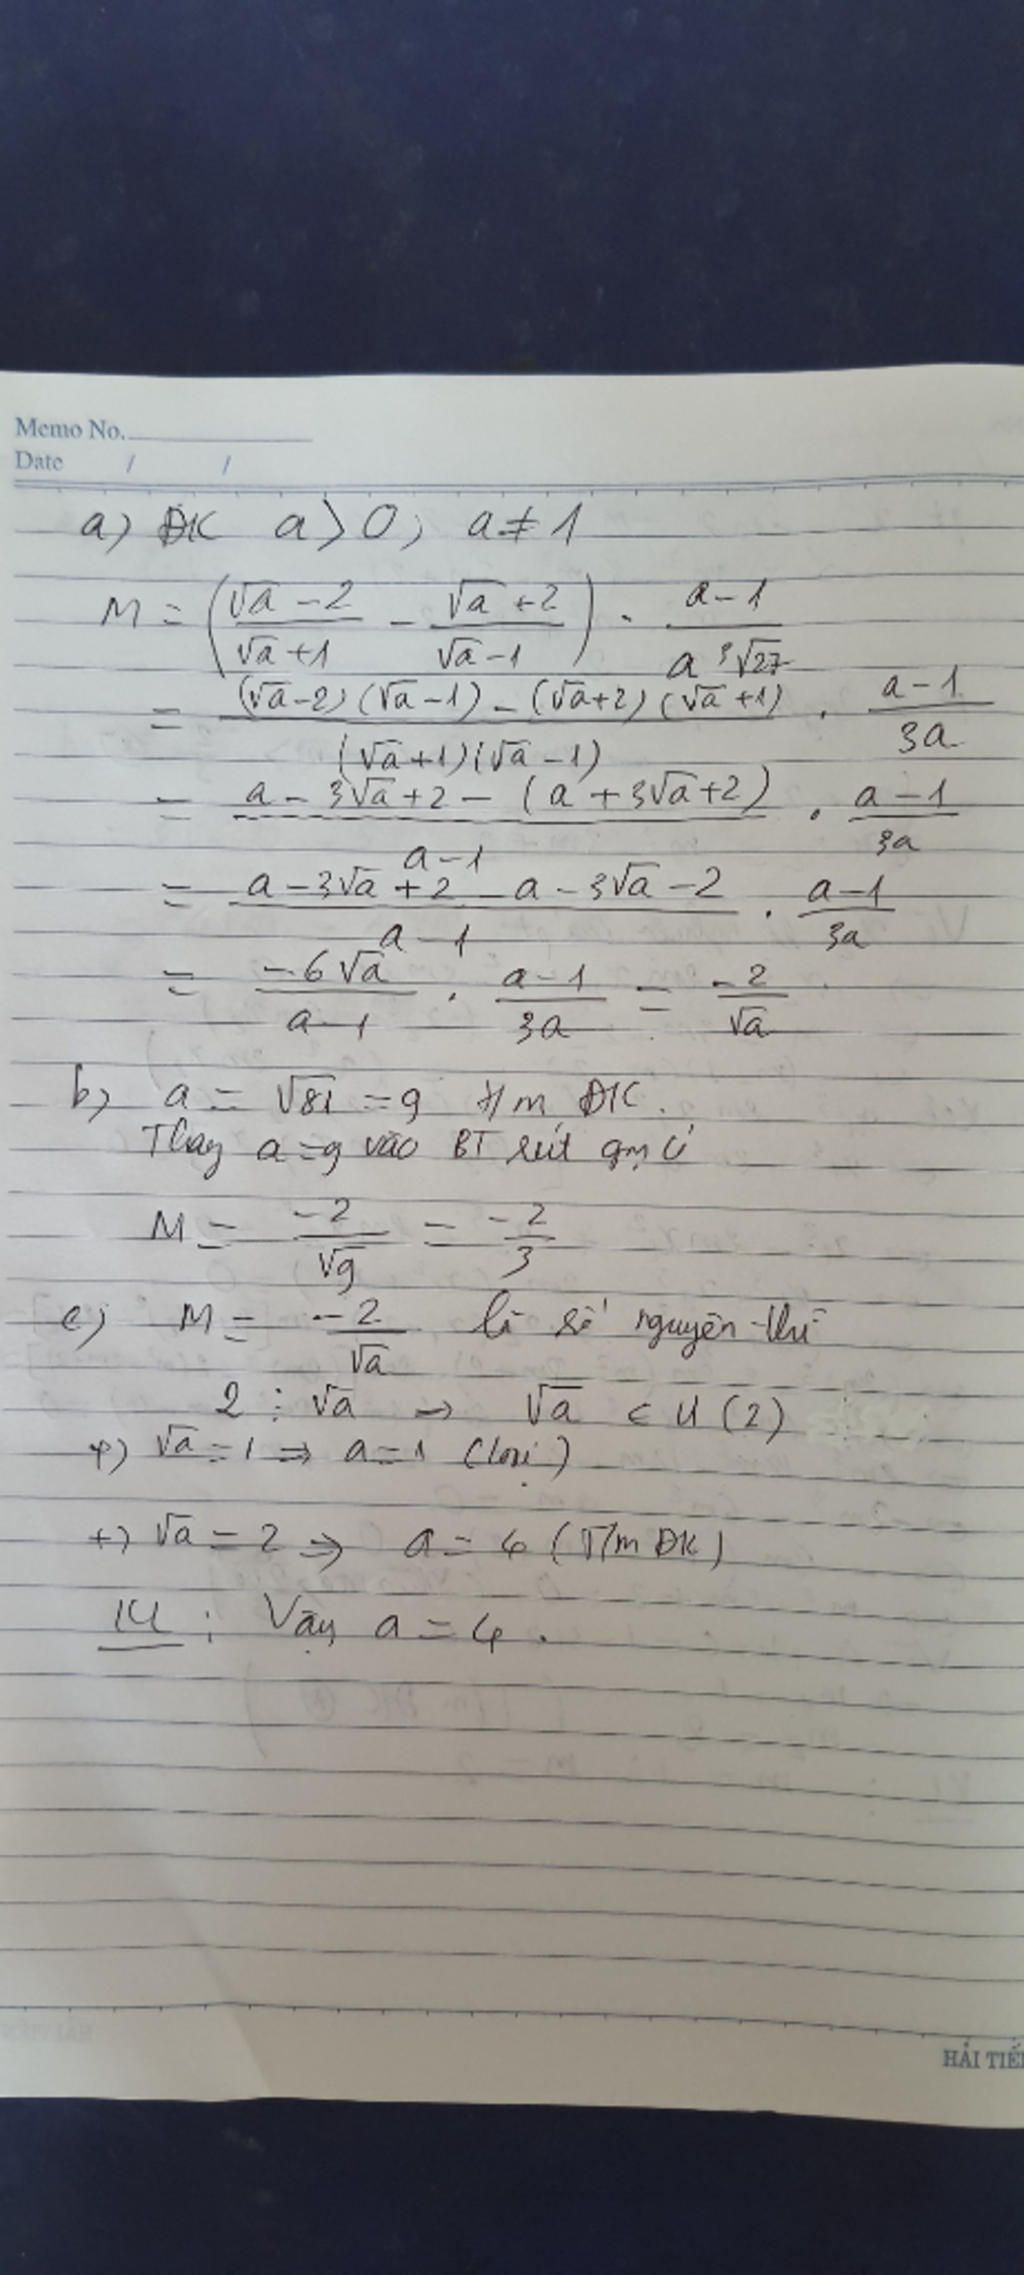 Memo No.
Date / /
a) ĐK a > 0; a ≠ 1
M = ((√a - 2)/(√a + 1) - (√a + 2)/(√a - 1)) · (a - 1)/(a ³√27)
= ((√a - 2)(√a - 1) - (√a + 2)(√a + 1))/((√a + 1)(√a - 1)) · (a - 1)/(3a)
= (a - 3√a + 2 - (a + 3√a + 2))/(a - 1) · (a - 1)/(3a)
= (a - 3√a + 2 - a - 3√a - 2)/(a - 1) · (a - 1)/(3a)
= (-6√a)/(a - 1) · (a - 1)/(3a) = (-2)/(√a)
b) a = √81 = 9 t/m ĐK.
Thay a = 9 vào BT rút gọn có
M = (-2)/(√9) = (-2)/3
c) M = (-2)/(√a) là số nguyên thì
2 ⋮ √a → √a ∈ Ư(2)
+) √a = 1 ⇒ a = 1 (loại)
+) √a = 2 ⇒ a = 4 (T/m ĐK)
KL : Vậy a = 4.
HẢI TIẾ